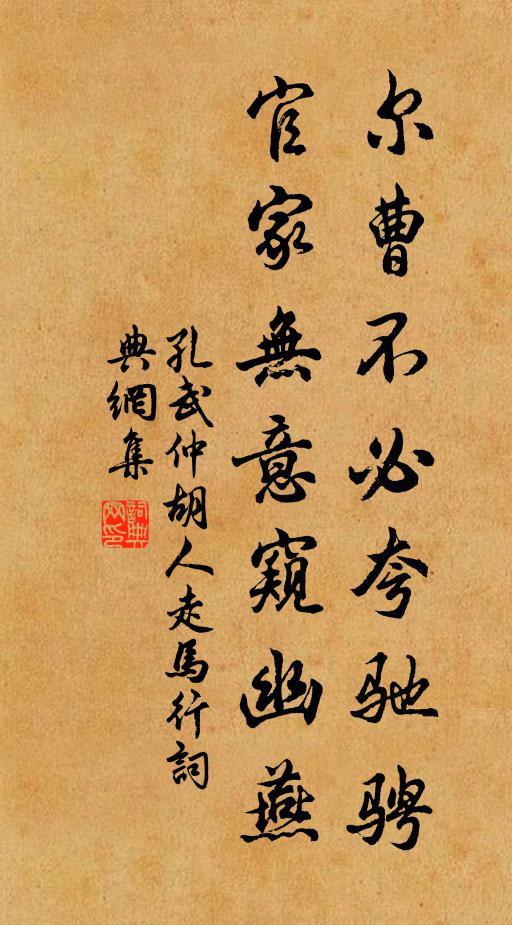 尔曹不必夸驰骋
官家無意窺幽燕
孔武仲胡人走馬行詞
典網集
詞典
网印